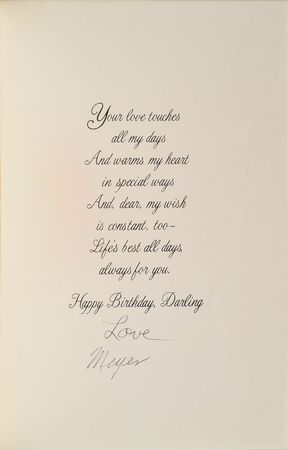 Your love touches
all my days
And warms my heart
in special ways
And, dear, my wish
is constant, too–
Life's best all days,
always for you.
Happy Birthday, Darling
Love
Meyer